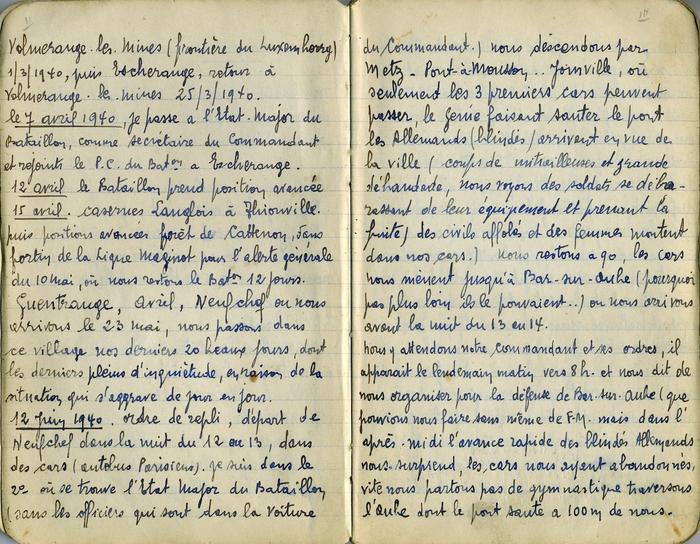 Volmerange. les. Mines (frontière du Luxembourg)
1/3/1940, puis Escherange, retour à
Volmerange. les mines 25/3/1940.
le 7 avril 1940, je passe à l'Etat. Major du
Bataillon, comme secrétaire du Commandant
et rejoins le P.C. du Baton a Escherange.
12 avril le Bataillon prend position avancée
15 avril. casernes Langlois à Thionville.
puis positions avancées forêt de Cattenon, sans
fortin de la Ligne Maginot pour l'alerte générale
du 10 mai, où nous restons le Baton 12 jours.
Guentrange, Avril, Neufchef ou nous
arrivons le 23 mai, nous passons dans
ce village nos derniers 20 beaux jours, dont
les derniers pleins d'inquiétude, en raison de la
situation qui s'aggrave de jour en jour.
12 Juin 1940. ordre de repli, départ de
Neufchef dans la nuit du 12 au 13, dans
des cars (autobus Parisiens). je suis dans le
2e où se trouve l'Etat Major du Bataillon
(sans les officiers qui sont dans la voiture
du Commandant.) nous descendons par
Metz - Pont-à-Mousson .. Joinville, où
seulement les 3 premiers cars peuvent
passer, le Génie faisant sauter le pont
les Allemands (blindés) arrivent en vue de
la ville (coups de mitrailleuses et grande
débandade, nous voyons des soldats se déba-
rassant de leur équipement et prenant la
fuite) des civils affolés et des femmes montent
dans nos cars.) nous restons 290, les cars
nous mènent jusqu'à Bar-sur-Aube (pourquoi
pas plus loin ils le pouvaient...) ou nous arrivons
avant la nuit du 13 au 14.
nous y attendons notre commandant et ses ordres, il
apparait le lendemain matin vers 8h. et nous dit de
nous organiser pour la défense de Bar-sur-Aube (que
pouvions nous faire sans même de F.M. mais dans l'
après-midi l'avance rapide des blindés Allemands
nous surprend, les cars nous ayant abandonnés,
vite nous partons pas de gymnastique traversons
l'Aube dont le pont saute a 100m de nous.